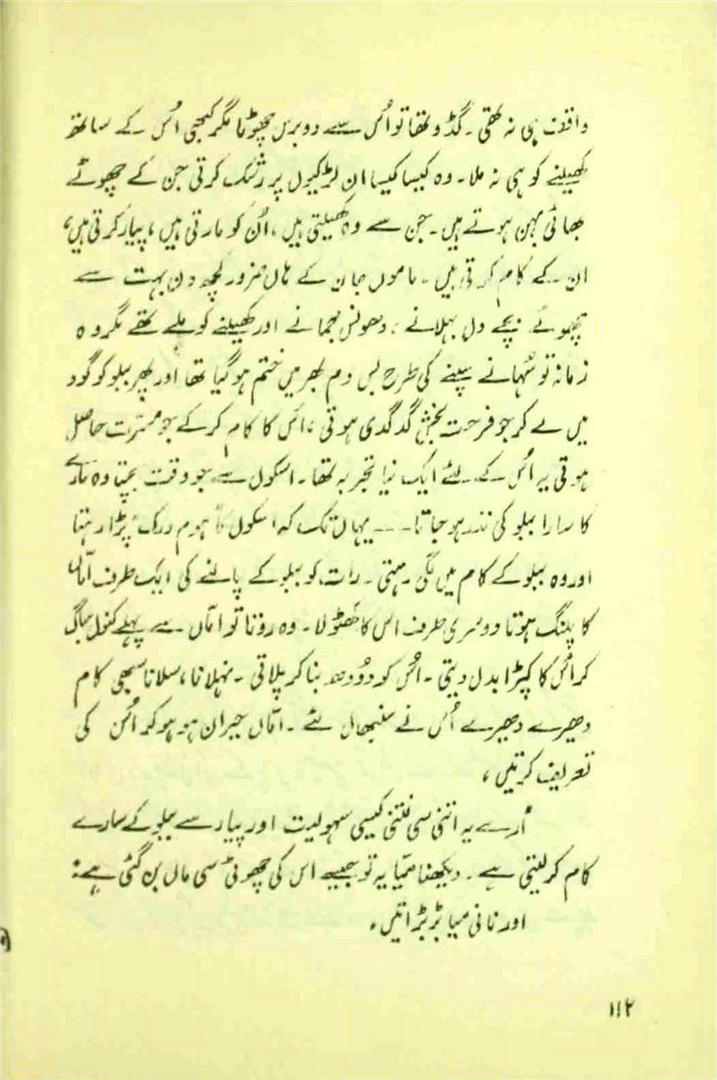 واقف ہی نہ تھی۔ گڈو تھا تو اُس سے دو برس چھوٹا مگر کبھی اُس کے ساتھ
کھیلنے کو ہی نہ ملا۔ وہ کیسا کیسا ان لڑکیوں پر رشک کرتی جن کے چھوٹے
بھائی بہن ہوتے ہیں۔ جن سے وہ کھیلتی ہیں، اُن کو مارتی ہیں، پیار کرتی ہیں،
ان کے کام کرتی ہیں۔ ماموں جان کے ہاں ضرور کچھ دن بہت سے
چھوٹے بچے دل بہلانے، دھونس جمانے اور کھیلنے کو ملے تھے مگر وہ
زمانہ تو سُہانے سپنے کی طرح بس دم بھر میں ختم ہو گیا تھا اور پھر ببلو کو گود
میں لے کر جو فرحت بخش گدگدی ہوتی، اُس کا کام کر کے جو مسرت حاصل
ہوتی یہ اُس کے لئے ایک نیا تجربہ تھا۔ اسکول سے جو وقت بچتا وہ سارے
کا سارا ببلو کی نذر ہو جاتا۔۔۔ یہاں تک کہ اسکول کا ہوم ورک پڑا رہتا
اور وہ ببلو کے کام میں لگی رہتی۔ رات کو ببلو کے پالنے کی ایک طرف اماں
کا پلنگ ہوتا دوسری طرف اس کا کھٹولا۔ وہ روتا تو اماں سے پہلے کنول بھاگ
کر اُس کا کپڑا بدل دیتی۔ اُس کو دُودھ بنا کر پلاتی۔ نہلانا، سلانا سبھی کام
دھیرے دھیرے اُس نے سنبھال لئے۔ اماں حیران ہو ہو کر اُس کی
تعریف کرتیں،
"ارے یہ اتنی سی ننھی کیسی سہولیت اور پیار سے ببلو کے سارے
کام کر لیتی ہے۔ دیکھنا میّا یہ تو جیسے اس کی چھوٹی سی ماں بن گئی ہے"
اور نانی میا بڑبڑاتیں،
۱۱۲